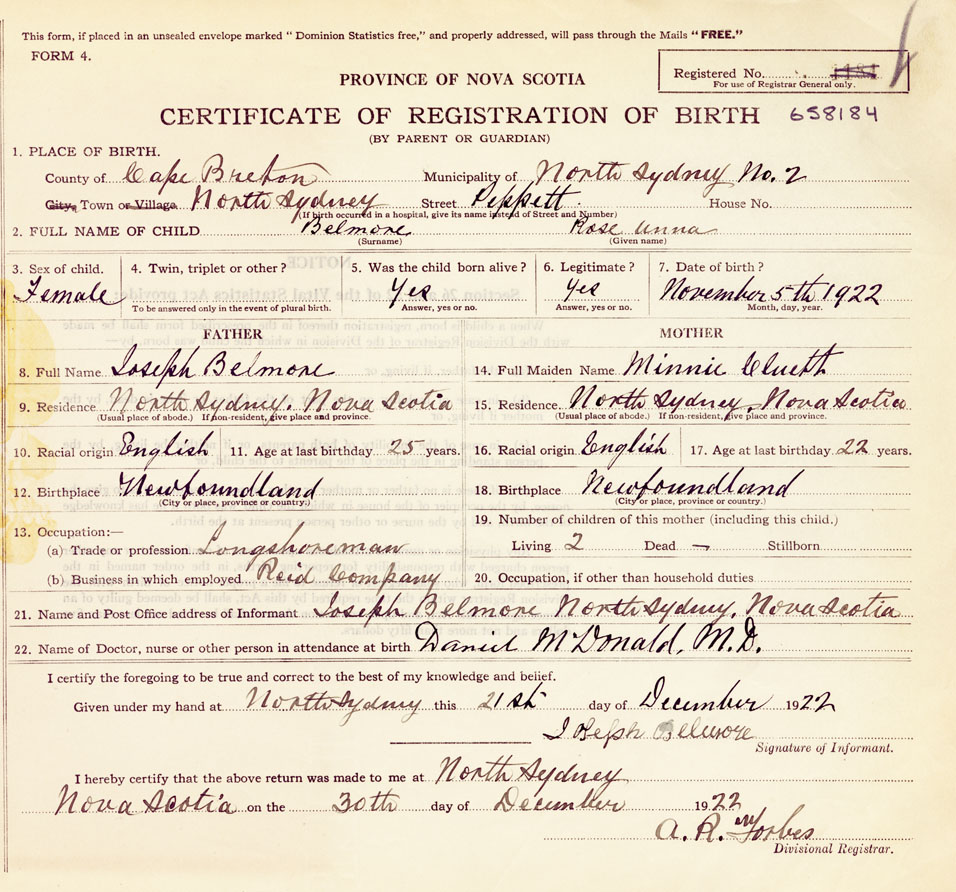 This form, if placed in an unsealed envelope marked "Dominion Statistics free," and properly addressed, will pass through the Mails "FREE."
FORM 4.
Registered No. 1484
For use of Registrar General only.
PROVINCE OF NOVA SCOTIA
CERTIFICATE OF REGISTRATION OF BIRTH 658184
(BY PARENT OR GUARDIAN)
1. PLACE OF BIRTH.
County of Cape Breton Municipality of North Sydney No. 2
City, Town or Village North Sydney Street Peppett. House No.
(If birth occurred in a hospital, give its name instead of Street and Number)
2. FULL NAME OF CHILD Belmore Rose Anna
(Surname) (Given name)
3. Sex of child. 4. Twin, triplet or other? 5. Was the child born alive? 6. Legitimate? 7. Date of birth?
Female Yes Yes November 5th 1922
To be answered only in the event of plural birth. Answer, yes or no. Answer, yes or no. Month, day, year.
FATHER MOTHER
8. Full Name Joseph Belmore 14. Full Maiden Name Minnie Cluett
9. Residence North Sydney, Nova Scotia 15. Residence North Sydney, Nova Scotia
(Usual place of abode.) If non-resident, give place and province. (Usual place of abode.) If non-resident, give place and province.
10. Racial origin English 11. Age at last birthday 25 years. 16. Racial origin English 17. Age at last birthday 22 years.
12. Birthplace Newfoundland 18. Birthplace Newfoundland
(City or place, province or country.) (City or place, province or country.)
13. Occupation:— 19. Number of children of this mother (including this child.)
(a) Trade or profession Longshoreman Living 2 Dead — Stillborn
(b) Business in which employed Reid Company 20. Occupation, if other than household duties
21. Name and Post Office address of Informant Joseph Belmore North Sydney, Nova Scotia
22. Name of Doctor, nurse or other person in attendance at birth Daniel McDonald, M.D.
I certify the foregoing to be true and correct to the best of my knowledge and belief.
Given under my hand at North Sydney this 21st day of December 1922
Joseph Belmore
Signature of Informant.
I hereby certify that the above return was made to me at North Sydney
Nova Scotia on the 30th day of December 1922
A. R. Forbes
Divisional Registrar.